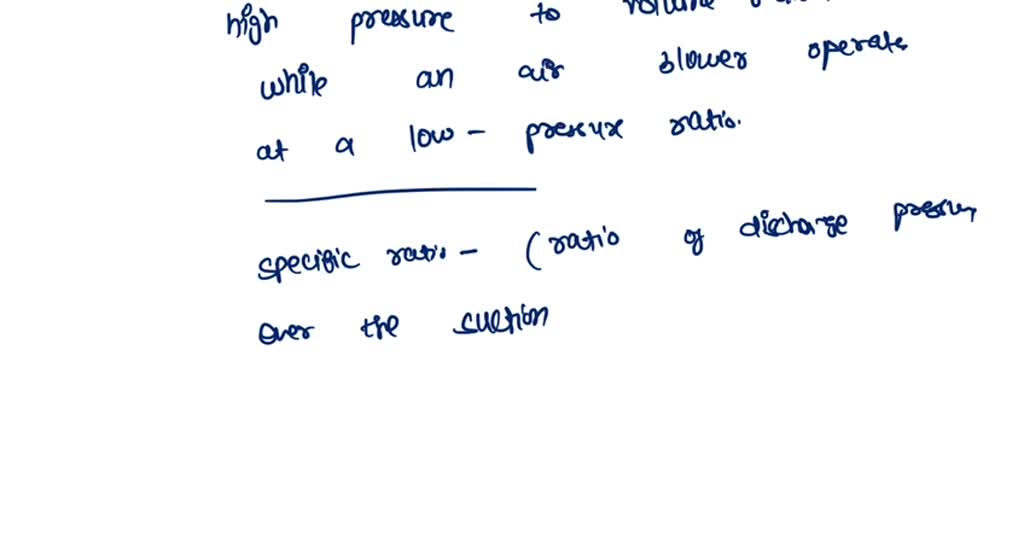 high pressure to volume
while an air blower operate
at a low - pressure ratio.
specific ratio - (ratio of discharge pressure
over the suction